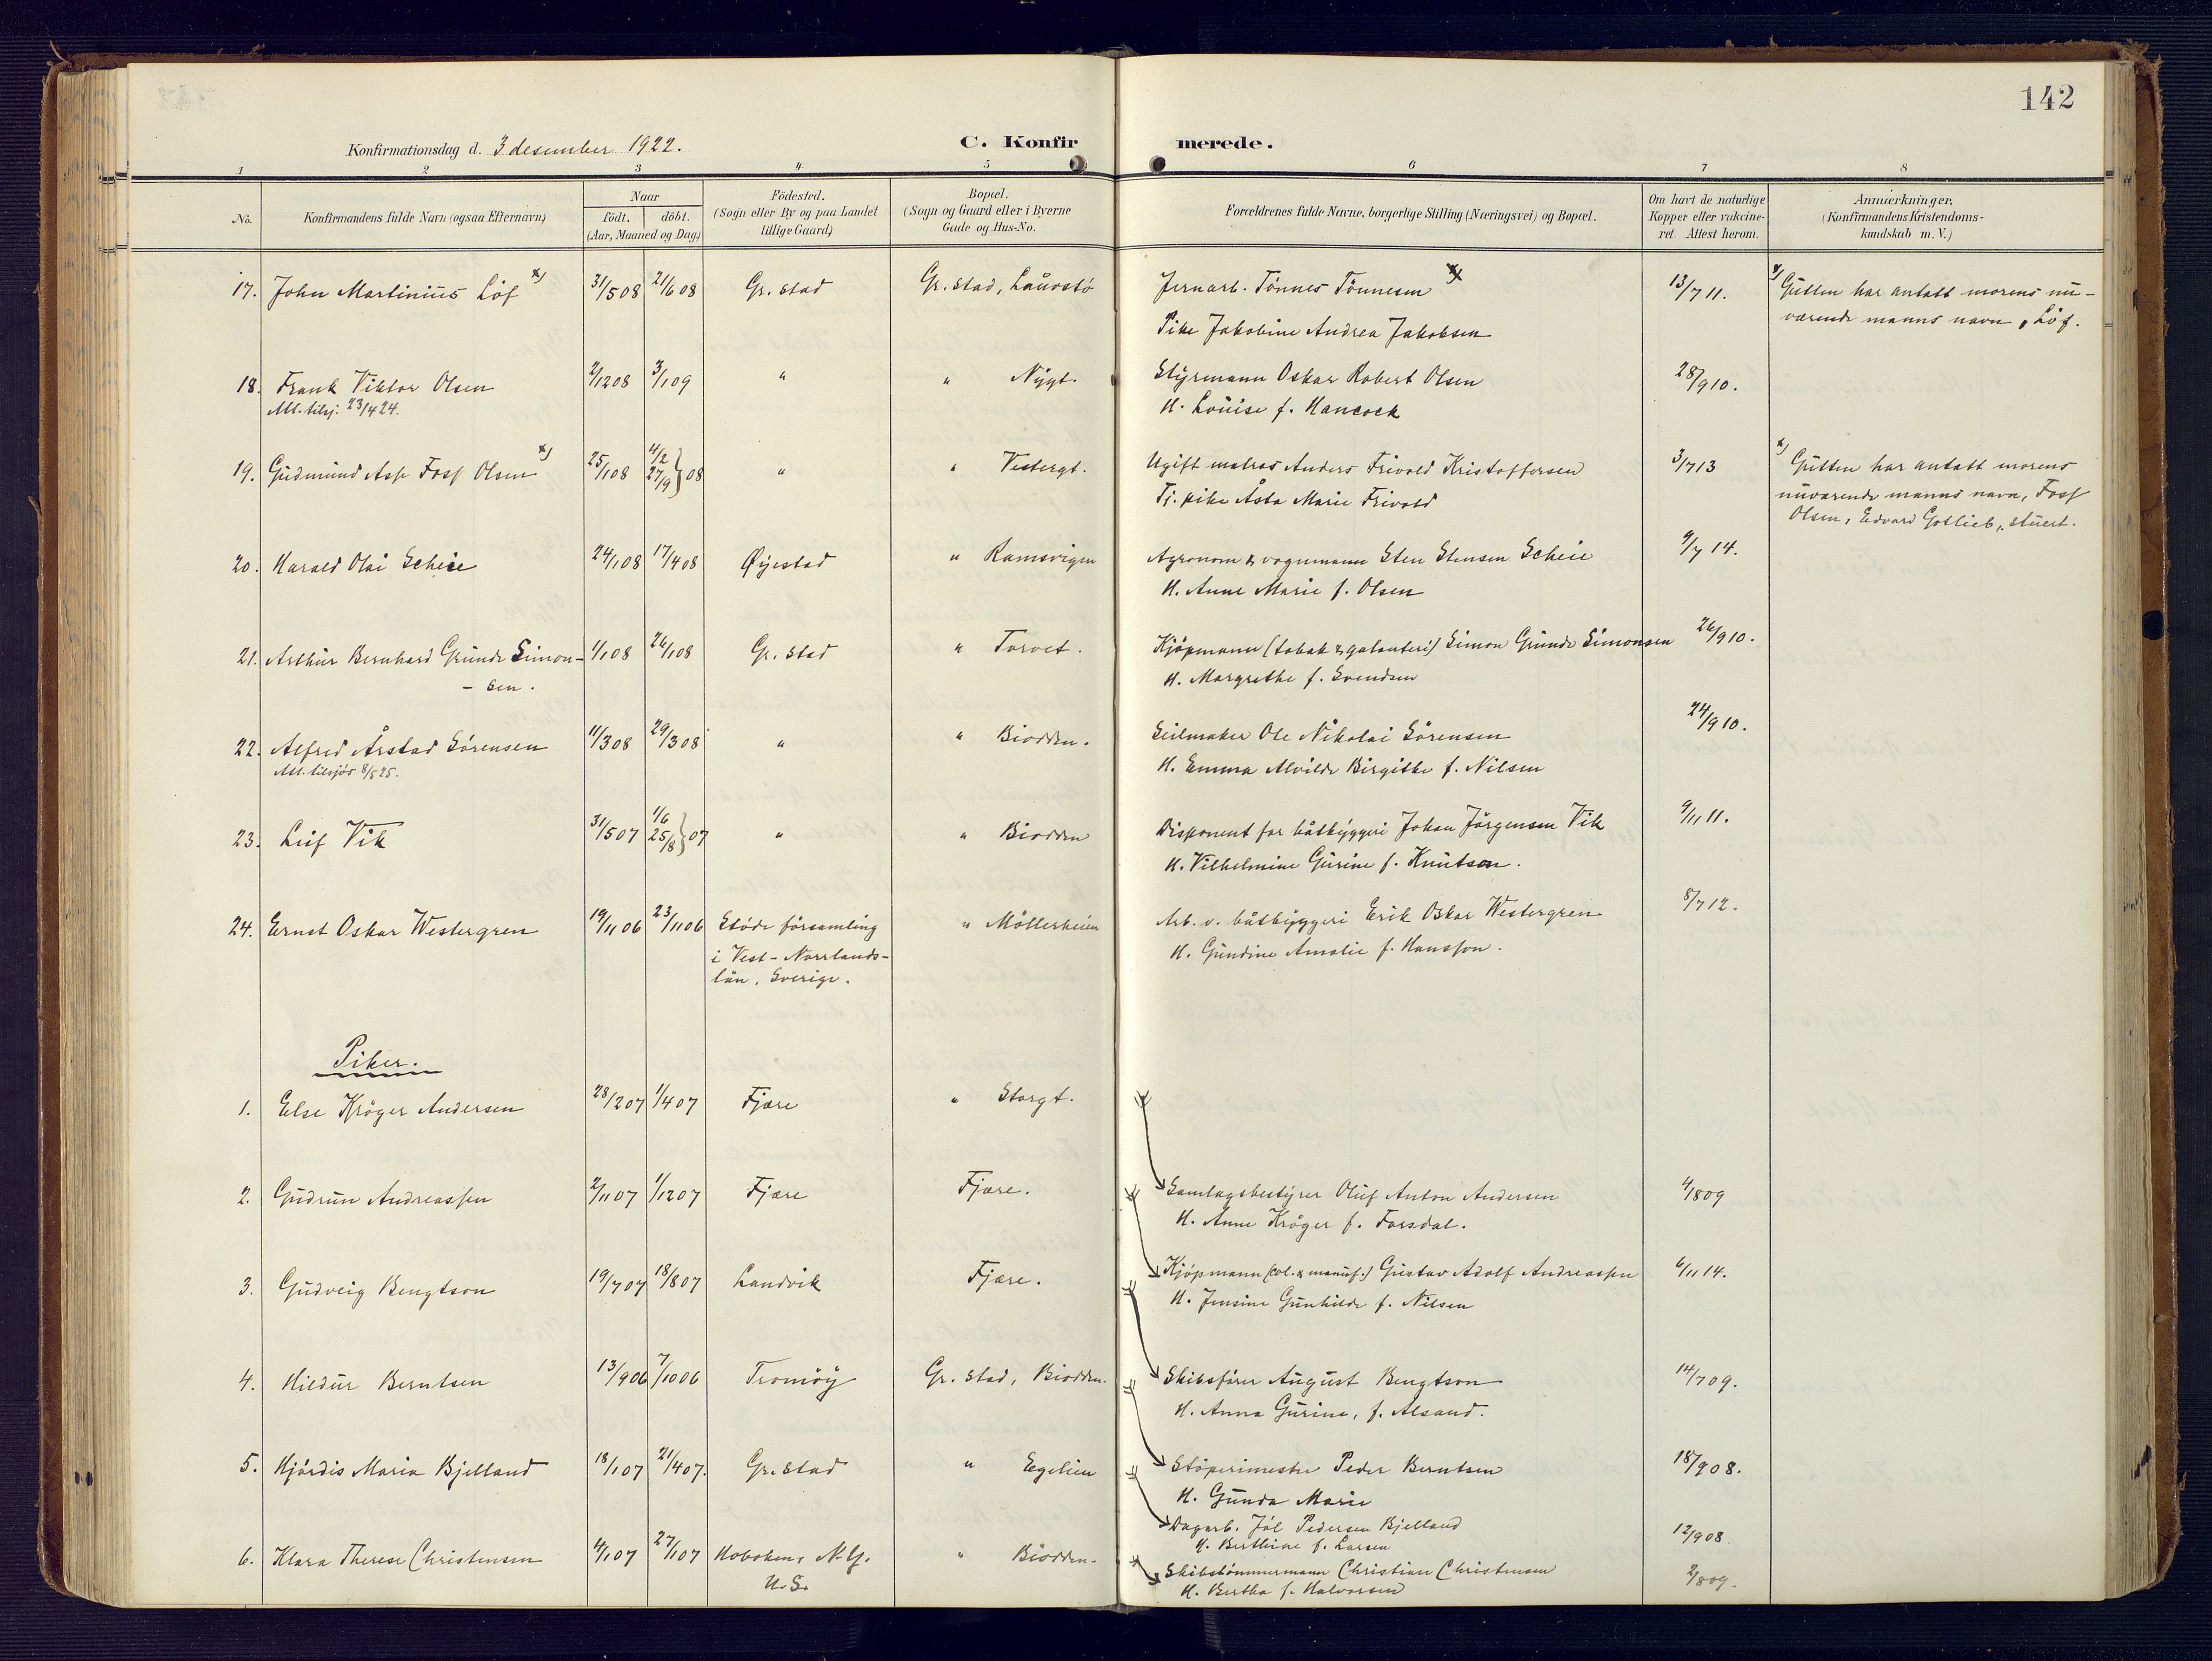 142
Konfirmationsdag d. 3 desember 1922.
C. Konfir
merede.
1 2 3 4 5 6 7 8
No.
Konfirmandens fulde Navn (ogsaa Efternavn)
Naar
födt. döbt.
(Aar, Maaned og Dag.)
Födested.
(Sogn eller By og paa Landet
tillige Gaard)
Bopæl.
(Sogn og Gaard eller i Byerne
Gade og Hus-No.
Forældrenes fulde Navne, borgerlige Stilling (Næringsvei) og Bopæl.
Om havt de naturlige
Kopper eller vakcine-
ret. Attest herom.
Anmærkninger.
(Konfirmandens Kristendoms-
kundskab m. V.)
17. John Martinius Löf x) 31/5 08 21/6 08 Gr. stad Gr. stad, Lauostö Jernarb. Tönnes Tönnesen x) 13/7 11. x) Gutten har antatt morens nu-
Pike Jakobine Andrea Jakobsen værende manns navn, Löf.
18. Frank Viktor Olsen 2/12 08 3/1 09 " " Nygt. Styrmann Oskar Robert Olsen 28/9 10.
Att. tilsj: 23/4 24. H. Louise f. Hancock
19. Gudmund Asp Foss Olsen x) 25/1 08 4/2 27/9 } 08 " " Vestergt. Ugift matros Anders Frivold Kristoffersen 3/7 13 x) Gutten har antatt morens
Tj. pike Åsta Marie Frivold nuværende manns navn, Foss
Olsen, Edvard Gotlieb, stuert.
20. Harald Olai Scheie 24/1 08 17/4 08 Øyestad " Ramsvigen Agronom & vognmann Sten Stensen Scheie 9/7 14.
H. Anne Marie f. Olsen
21. Arthur Bernhard Grunde Simon- 1/1 08 26/1 08 Gr. stad " Torvet. Kjöpmann (tobak & galanteri) Simon Grunde Simonsen 26/9 10.
- sen. H. Margrethe f. Svendsen
22. Alfred Årstad Sörensen 11/3 08 29/3 08 " " Biodden. Seilmaker Ole Nikolai Sörensen 24/9 10.
Att. tilsjös 8/5 25. H. Emma Alvilde Birgitte f. Nilsen
23. Leif Vik 31/5 07 1/6 25/8 } 07 " " Biodden Disponent for båtbyggeri Johan Jörgensen Vik 9/11 11.
H. Vilhelmine Gurine f. Knutsen.
24. Ernst Oskar Westergren 19/11 06 23/11 06 Stöde församling " Möllerheien Arb. v. båtbyggeri Erik Oskar Westergren 8/7 12.
i Vest-Norrlands- H. Gundine Amalie f. Hansson.
län, Sverige.
Piker.
1. Else Kröger Andersen 28/2 07 1/4 07 Fjære " Storgt.
2. Gudrun Andreassen 2/11 07 1/12 07 Fjære Fjære. Samlagsbestyrer Oluf Anton Andersen 4/8 09
H. Anne Kröger f. Forsdal.
3. Gudveig Bengtson 19/7 07 18/8 07 Landvik Fjære. Kjöpmann (col. & manuf.) Gustav Adolf Andreassen 6/11 14.
H. Jensine Gunhilde f. Nilsen
4. Hildur Berntsen 13/9 06 7/10 06 Tromöy Gr. stad, Biodden. Skibsförer August Bengtson 14/7 09.
H. Anna Gurine, f. Alsand.
5. Hjördis Maria Bjelland 18/1 07 21/4 07. Gr. stad " Egelien Stöperimester Peder Berntsen 18/9 08.
H. Gunda Marie
Dagarb. Jöl Pedersen Bjelland 12/9 08
H. Berthine f. Larsen
6. Klara Therese Christensen 4/1 07 27/1 07 Hoboken, N.Y. " Biodden. Skibstömmermann Christian Christensen 2/8 09.
U.S. H. Bertha f. Halvorsen